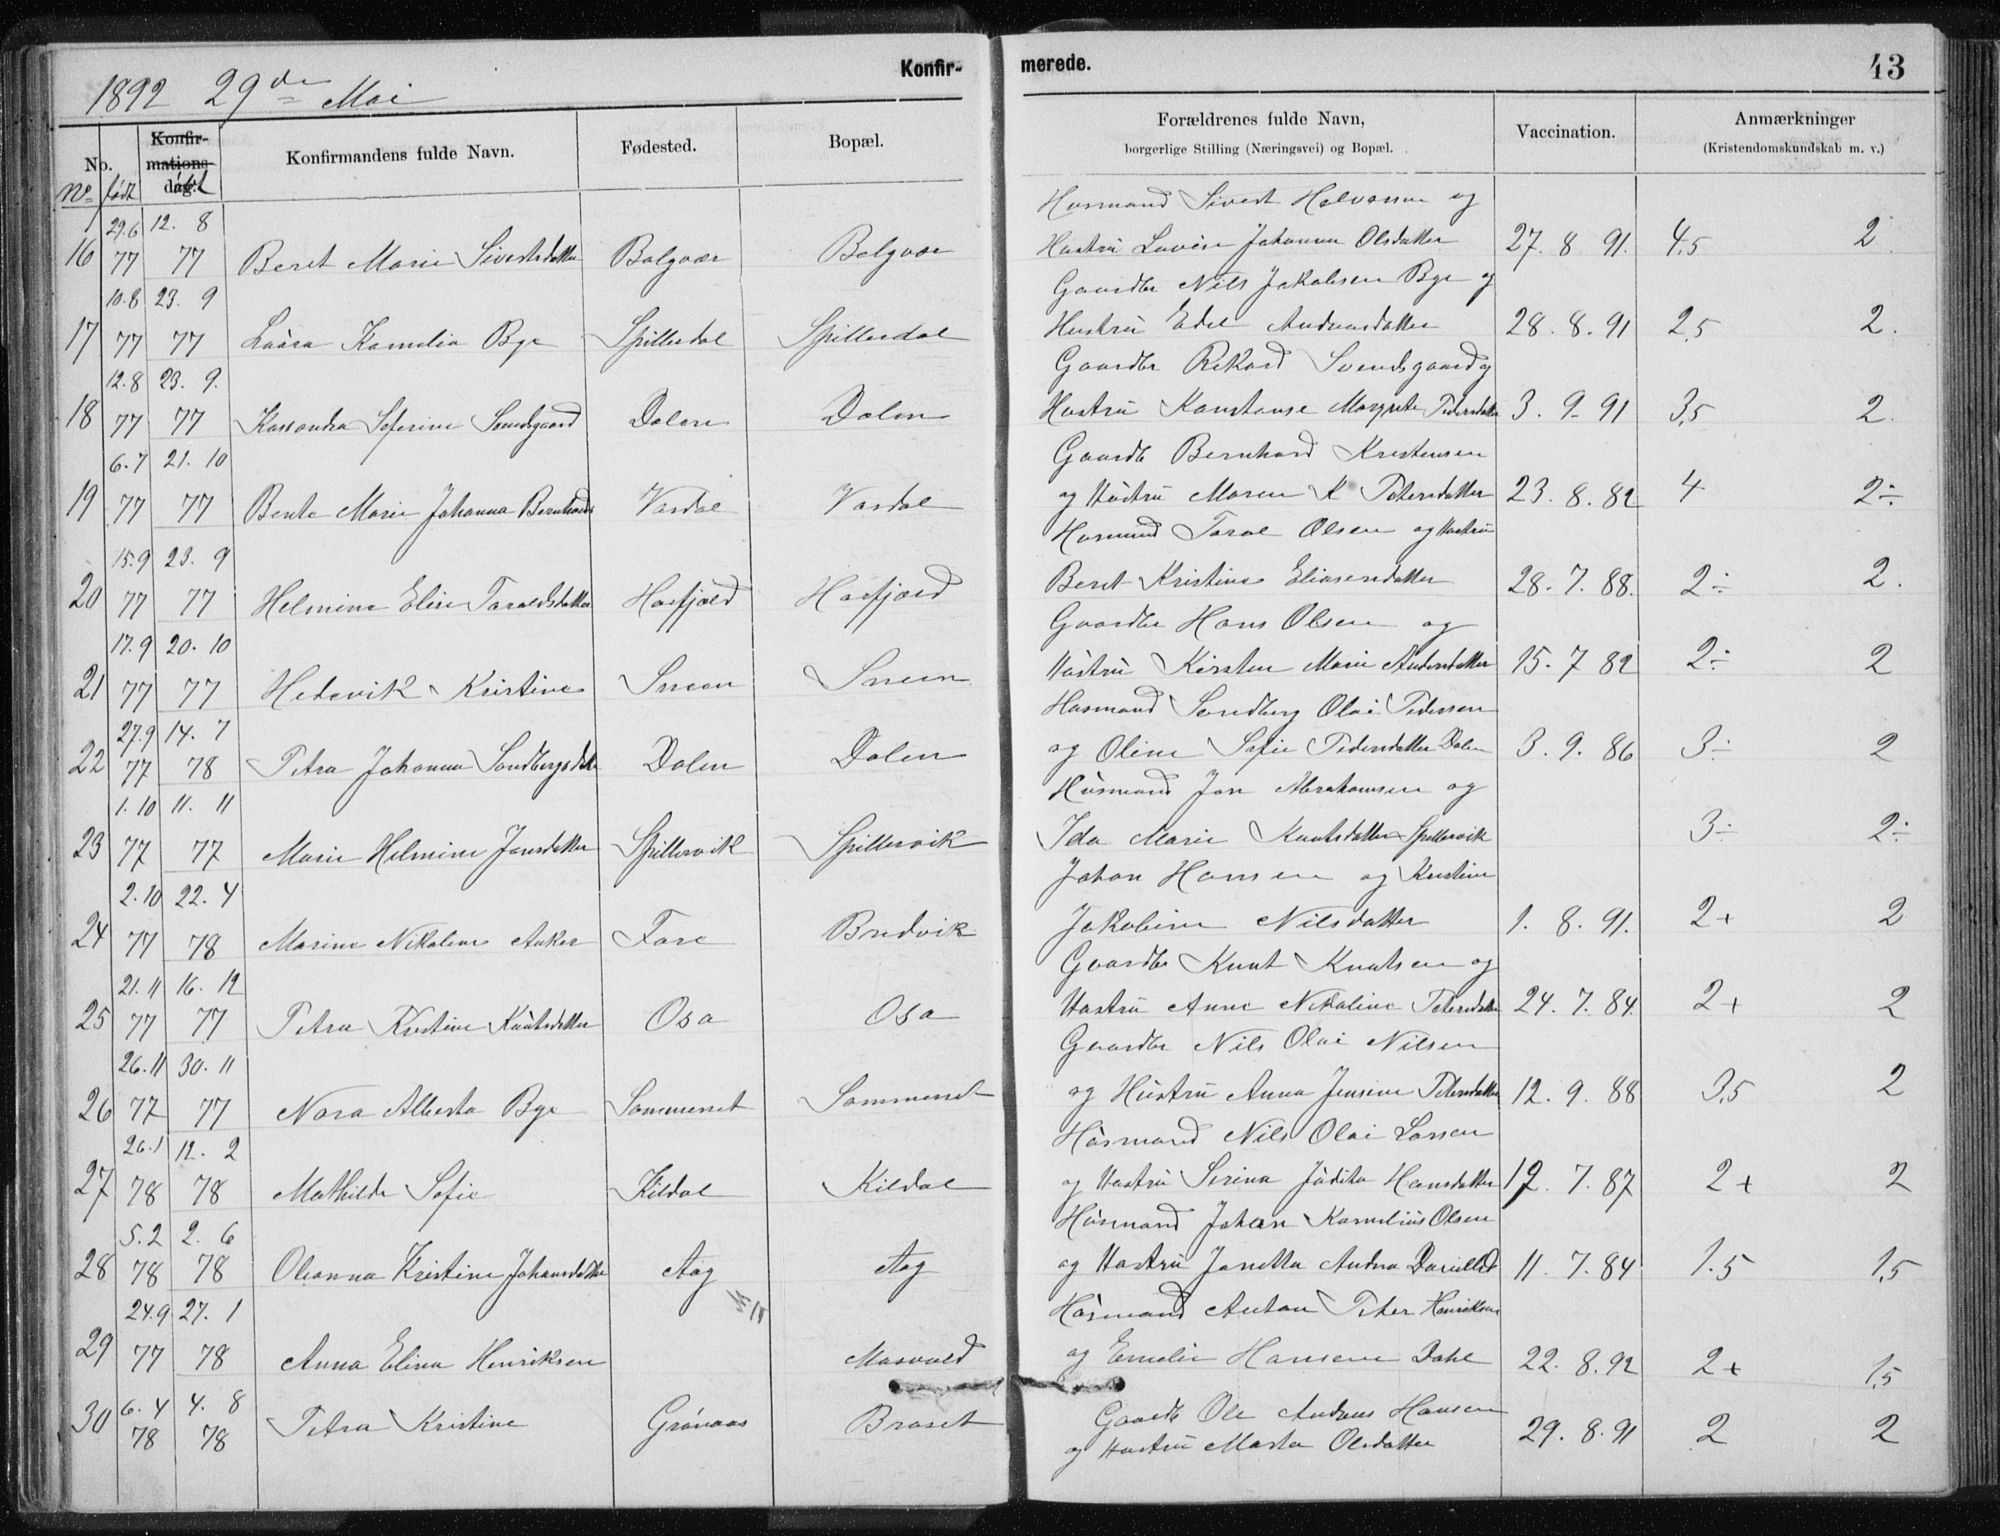 1892 29de Mai
Konfir-
merede.
43
No.
Konfir-
mations-
dag.
Konfirmandens fulde Navn.
Fødested.
Bopæl.
Forældrenes fulde Navn,
borgerlige Stilling (Næringsvei) og Bopæl.
Vaccination.
Anmærkninger
(Kristendomskundskab m. v.)
No født
29.6 12. 8 Husmand Sivert Halvorsen og
16 77 77 Beret Marie Sivertsdatter Bolgvær Bolgvær Hustru Lovise Johanna Olsdatter 27. 8 91. 4,5 2
10.8 23. 9 Gaardbr Nils Jakobsen Bye og
17 77 77 Laura Kornelia Bye Spilderdal Spilderdal Hustru Edel Andreasdatter 28. 8. 91 2,5 2.
12.8 23. 9. Gaardbr Rikard Svendsgaard og
18 77 77 Kassandra Seferine Svendsgaard Dalen Dalen Hustru Konstanse Margrete Pedersdatter 3. 9. 91 3,5 2.
6.7 21. 10 Gaardb Bernhard Kristensen
19 77 77 Bente Marie Johanna Bernhards Vardal Vardal og Hustru Maren K Petersdatter 23. 8. 82 4 2÷
15.9 23. 9 Husmand Taral Olsen og Hustru
20 77 77 Helmine Elise Taraldsdatter Hasfjord Hasfjord Beret Kristine Eliasendatter 28. 7. 88. 2÷ 2.
17.9 20. 10 Gaardbr Hans Olsen og
21 77 77 Hedevik Kristine Sneen Sneen Hustru Kirsten Marie Andersdatter 15. 7 82 2÷ 2
27.9 14. 7 Husmand Sandberg Olai Pedersen
22 77 78 Petra Johanna Sandbergsdatter Dalen Dalen og Oline Sofie Pedersdatter Dalen 3. 9. 86 3÷ 2
1.10 11. 11 Husmand Jon Abrahamsen og
23 77 77 Marie Helmine Jonsdatter Spildervik Spildervik Ida Marie Knutsdatter Spildervik 3÷ 2÷
2.10 22. 4 Johan Hansen og Kristine
24 77 78 Marine Nikoline Anker Fore Bredvik Jakobine Nilsdatter 1. 8. 91. 2+ 2
21.11 16. 12 Gaardbr Knut Knutsen og
25 77 77 Petra Kristine Knutsdatter Osa Osa Hustru Anne Nikoline Petersdatter 24. 7. 84. 2+ 2
26.11 30. 11 Gaardbr Nils Olai Nilsen
26 77 77 Nora Alberta Bye Sommerset Sommerset og Hustru Anna Jensine Petersdatter 12. 9. 88 3,5 2
26.1 12. 2 Husmand Nils Olai Larsen
27 78 78 Mathilde Sofie Kildal Kildal og Hustru Serina Judita Hansdatter 12. 7. 87 2+ 2
5.2 2. 6 Husmand Johan Kornelius Olsen
28 78 78 Oleanna Kristine Johansdatter Aag Aag og Hustru Janetta Andrea Danielsd 11. 7. 84 1.5 1,5
24.9 27. 1 Husmand Anton Peter Henriksen
29 77 78 Anna Elina Henriksen Masvold og Emelie Hansen Dahl 22. 8. 92 2+ 1,5
6.4 4. 8 Gaardb Ole Andreas Hansen
30 78 78 Petra Kristine Grønaas Braset og Hustru Marta Olsdatter 29. 8. 91 2 2